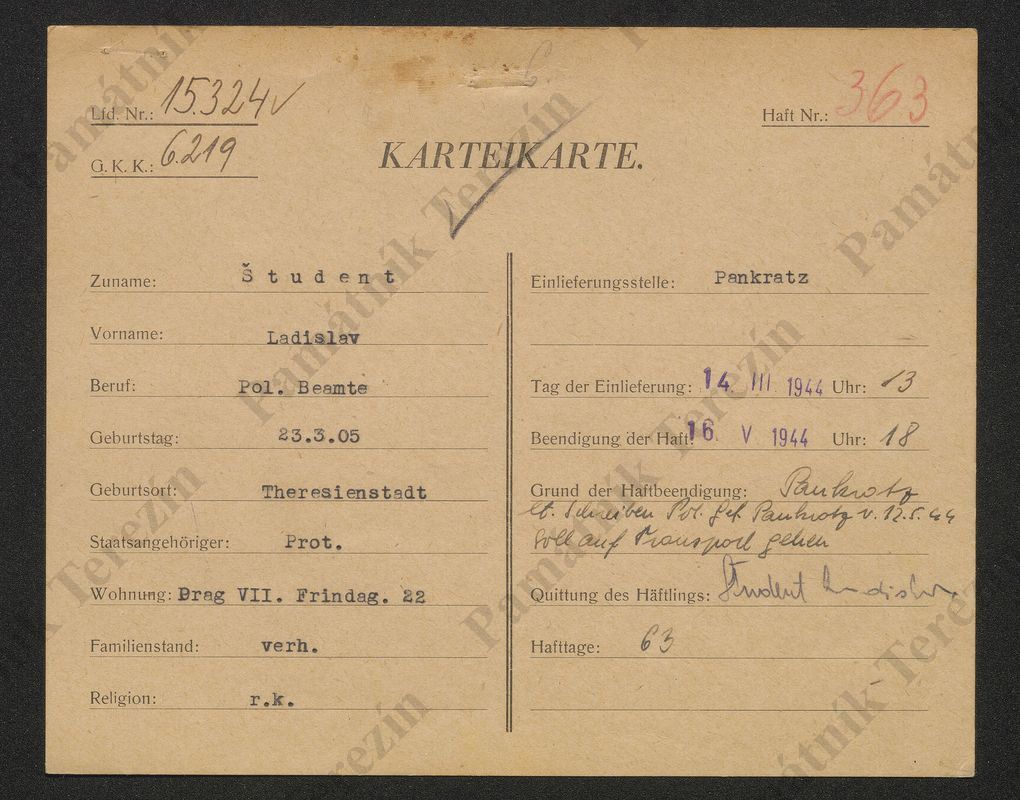 Lfd. Nr.: 15.324
G. K. K.: 6.219
Haft Nr.: 363
KARTEIKARTE.
Zuname: Študent
Vorname: Ladislav
Beruf: Pol. Beamte
Geburtstag: 23.3.05
Geburtsort: Theresienstadt
Staatsangehöriger: Prot.
Wohnung: Prag VII. Frindag. 22
Familienstand: verh.
Religion: r.k.
Einlieferungsstelle: Pankratz
Tag der Einlieferung: 14. III 1944 Uhr: 13
Beendigung der Haft: 16. V 1944 Uhr: 18
Grund der Haftbeendigung: Pankratz
lt. Schreiben Pol. Gef. Pankratz v. 12.5.44
soll auf Transport gehen
Quittung des Häftlings: Študent Ladislav
Hafttage: 63
Památník Terezín
Památník Terezín
Památník Terezín
Památník Terezín